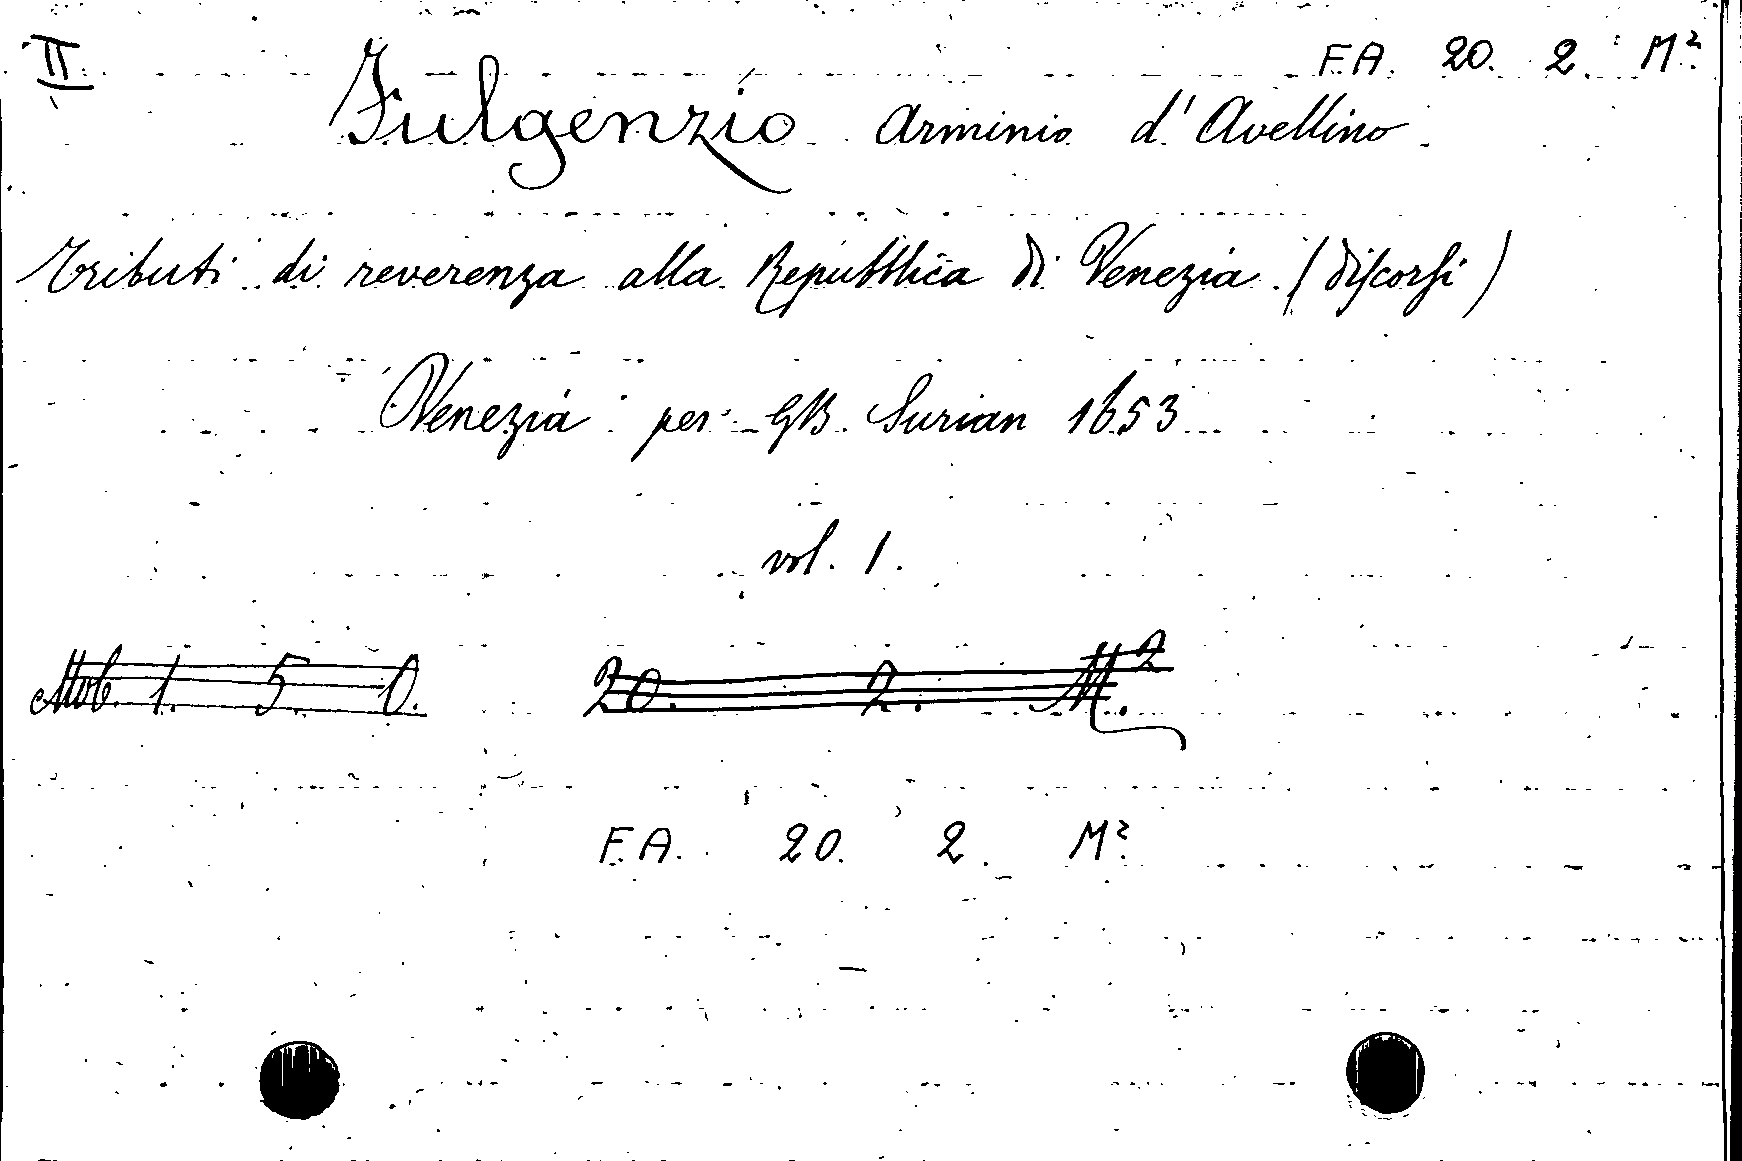 II F.A. 20. 2. M²
Fulgenzio Arminio d'Avellino
Tributi di reverenza alla Repubblica di Venezia (discorsi)
Venezia per GB. Surian 1653
vol. 1.
Mob. 1. 5. 0. 20. 2. M.²
F.A. 20. 2. M²